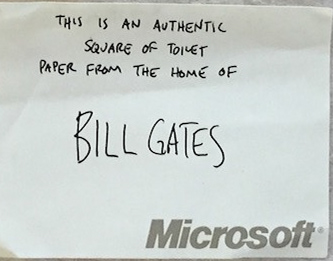 THIS IS AN AUTHENTIC
SQUARE OF TOILET
PAPER FROM THE HOME OF
BILL GATES
Microsoft